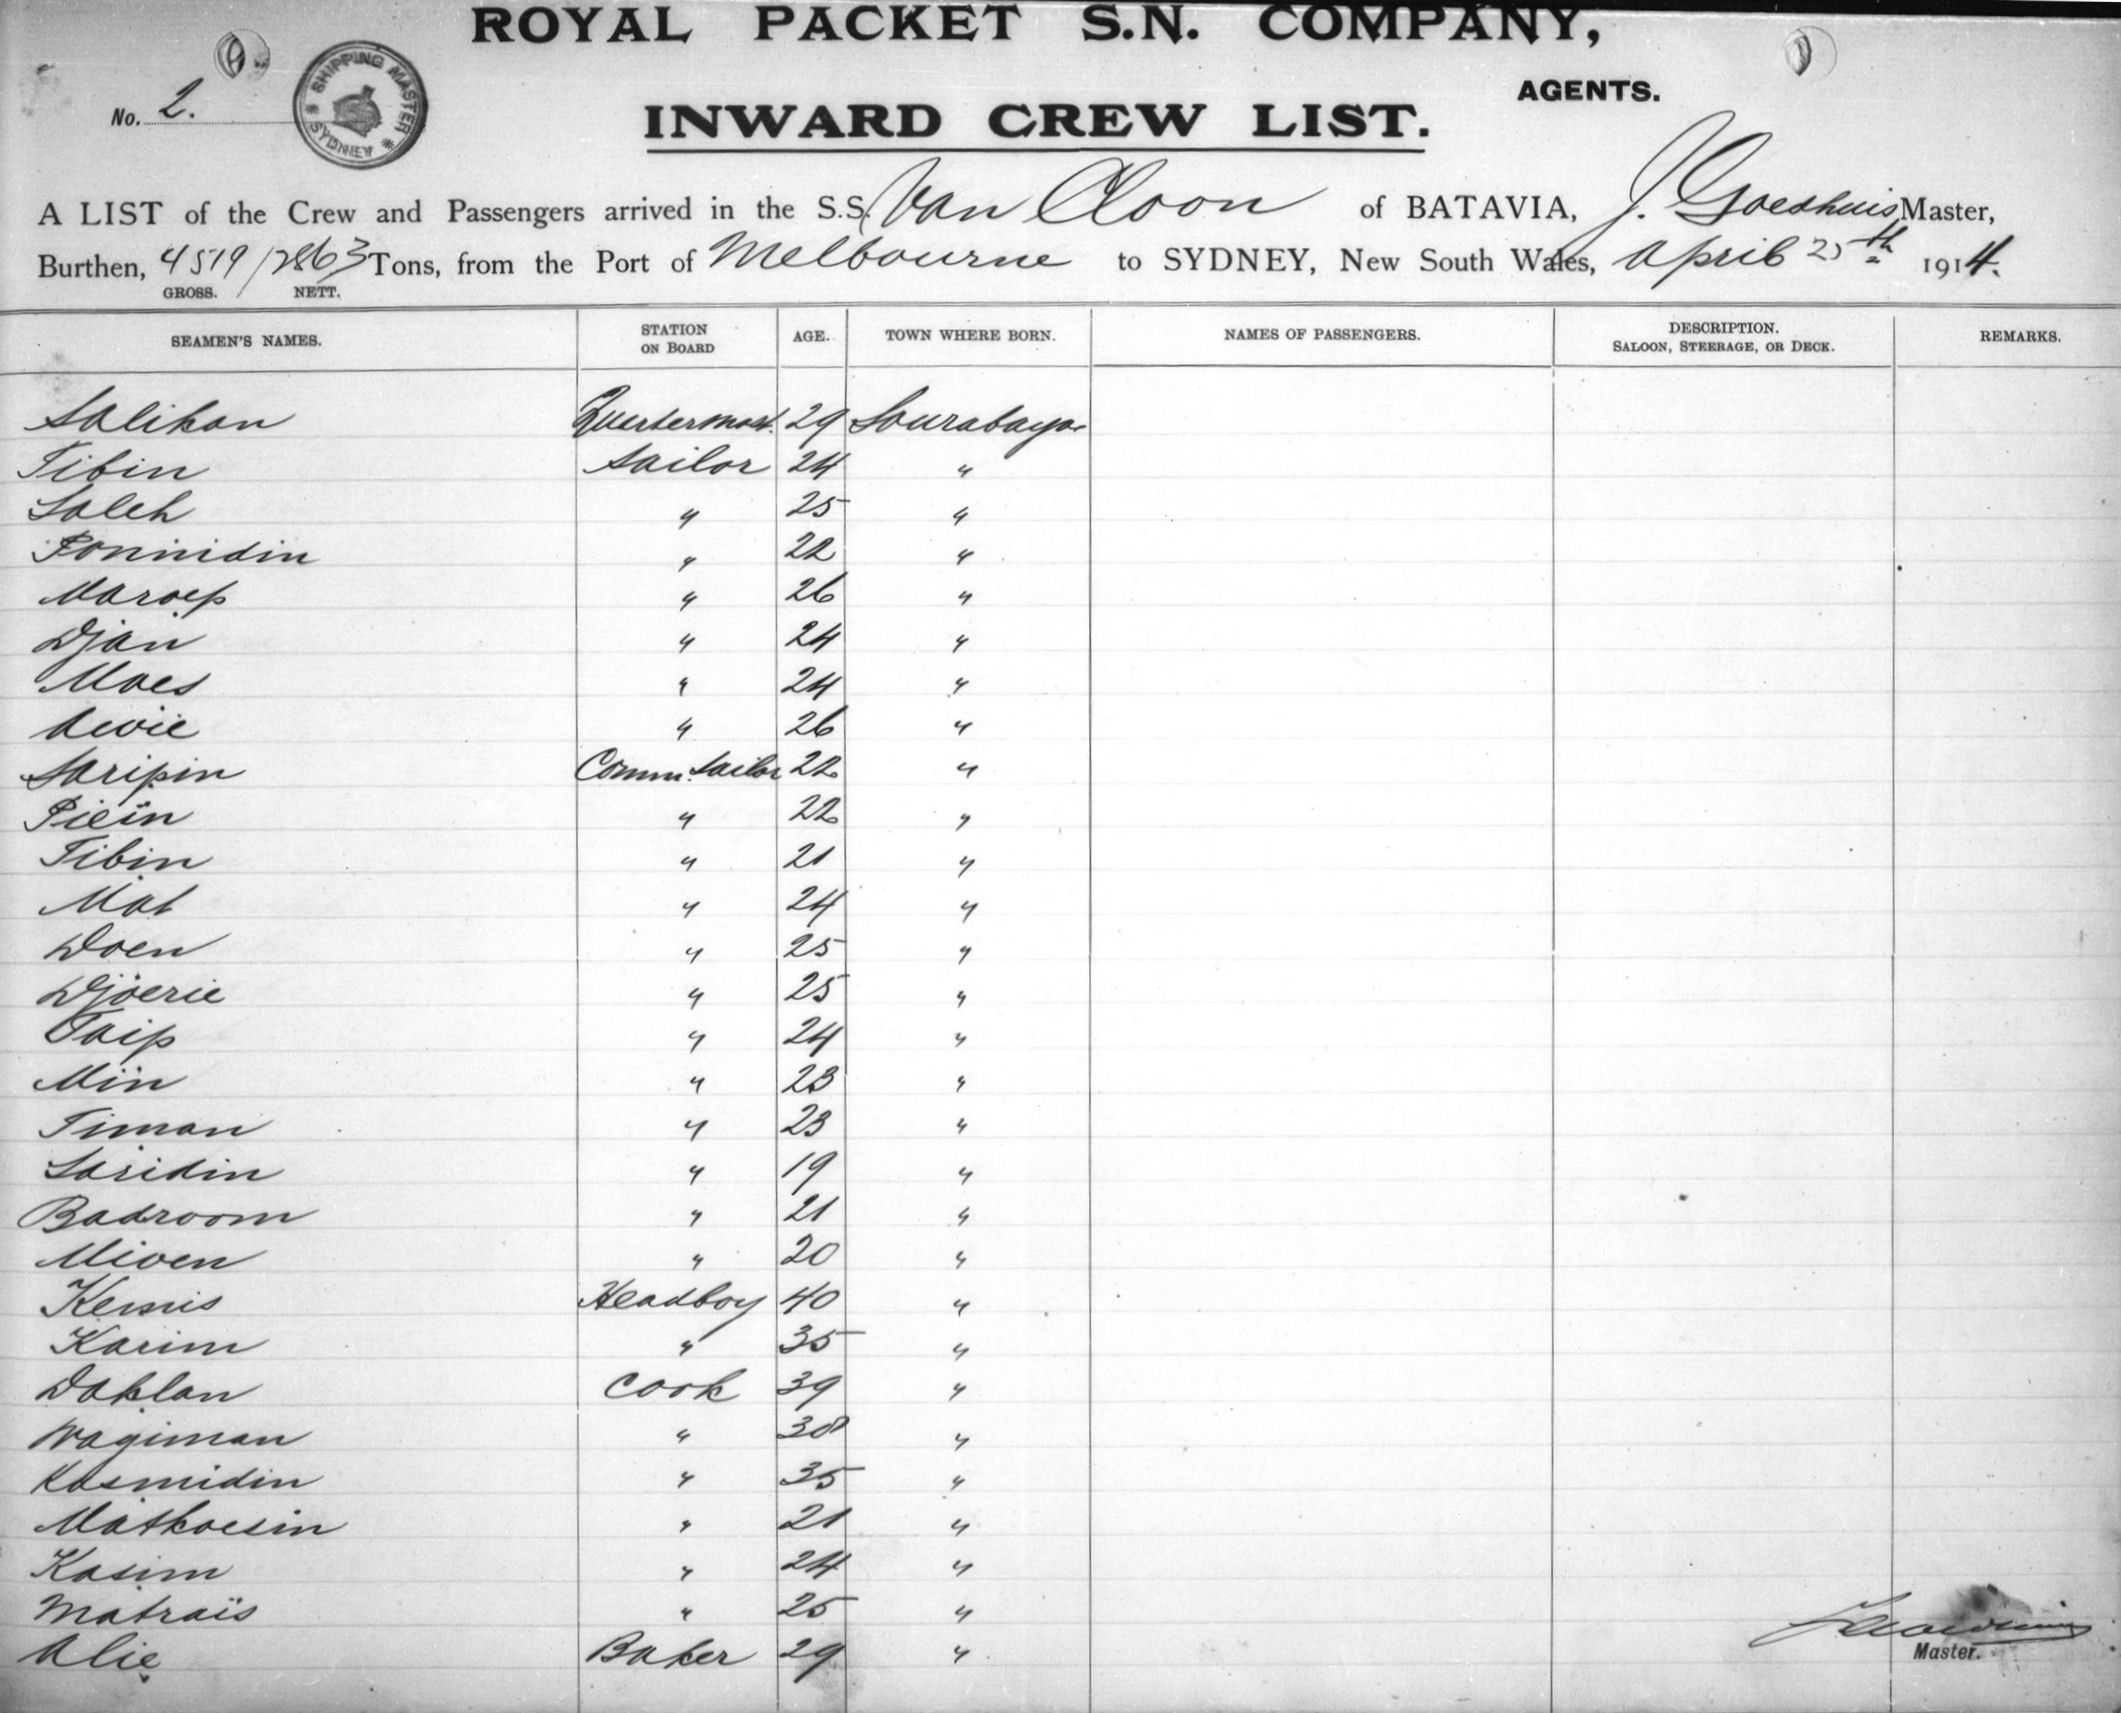 ROYAL PACKET S.N. COMPANY,
AGENTS.
No. 2.
SHIPPING MASTER SYDNEY
INWARD CREW LIST.
A LIST of the Crew and Passengers arrived in the S.S. Van Cloon of BATAVIA, J. Goedhuis Master,
Burthen, 4519/2863 Tons, from the Port of Melbourne to SYDNEY, New South Wales, April 25th 1914.
GROSS. NETT.
SEAMEN'S NAMES. STATION ON BOARD AGE. TOWN WHERE BORN. NAMES OF PASSENGERS. DESCRIPTION. SALOON, STEERAGE, OR DECK. REMARKS.
Salikan Quartermast. 29 Sourabaya
Tibin sailor 24 "
Saleh " 25 "
Ponnidin " 22 "
Maroep " 26 "
Djan " 24 "
Moes " 24 "
Awie " 26 "
Saripin Comm. sailor 22 "
Piein " 22 "
Tibin " 21 "
Mat " 24 "
Doen " 25 "
Djoerie " 25 "
Taip " 24 "
Min " 23 "
Timan " 23 "
Saridin " 19 "
Badroom " 21 "
Mioen " 20 "
Kemis Headboy 40 "
Karim " 35 "
Daklan Cook 39 "
Wagiman " 30 "
Kasmidin " 35 "
Matkoesin " 21 "
Kasim " 24 "
Matraïs " 25 "
Alie Baker 29 "
Master.